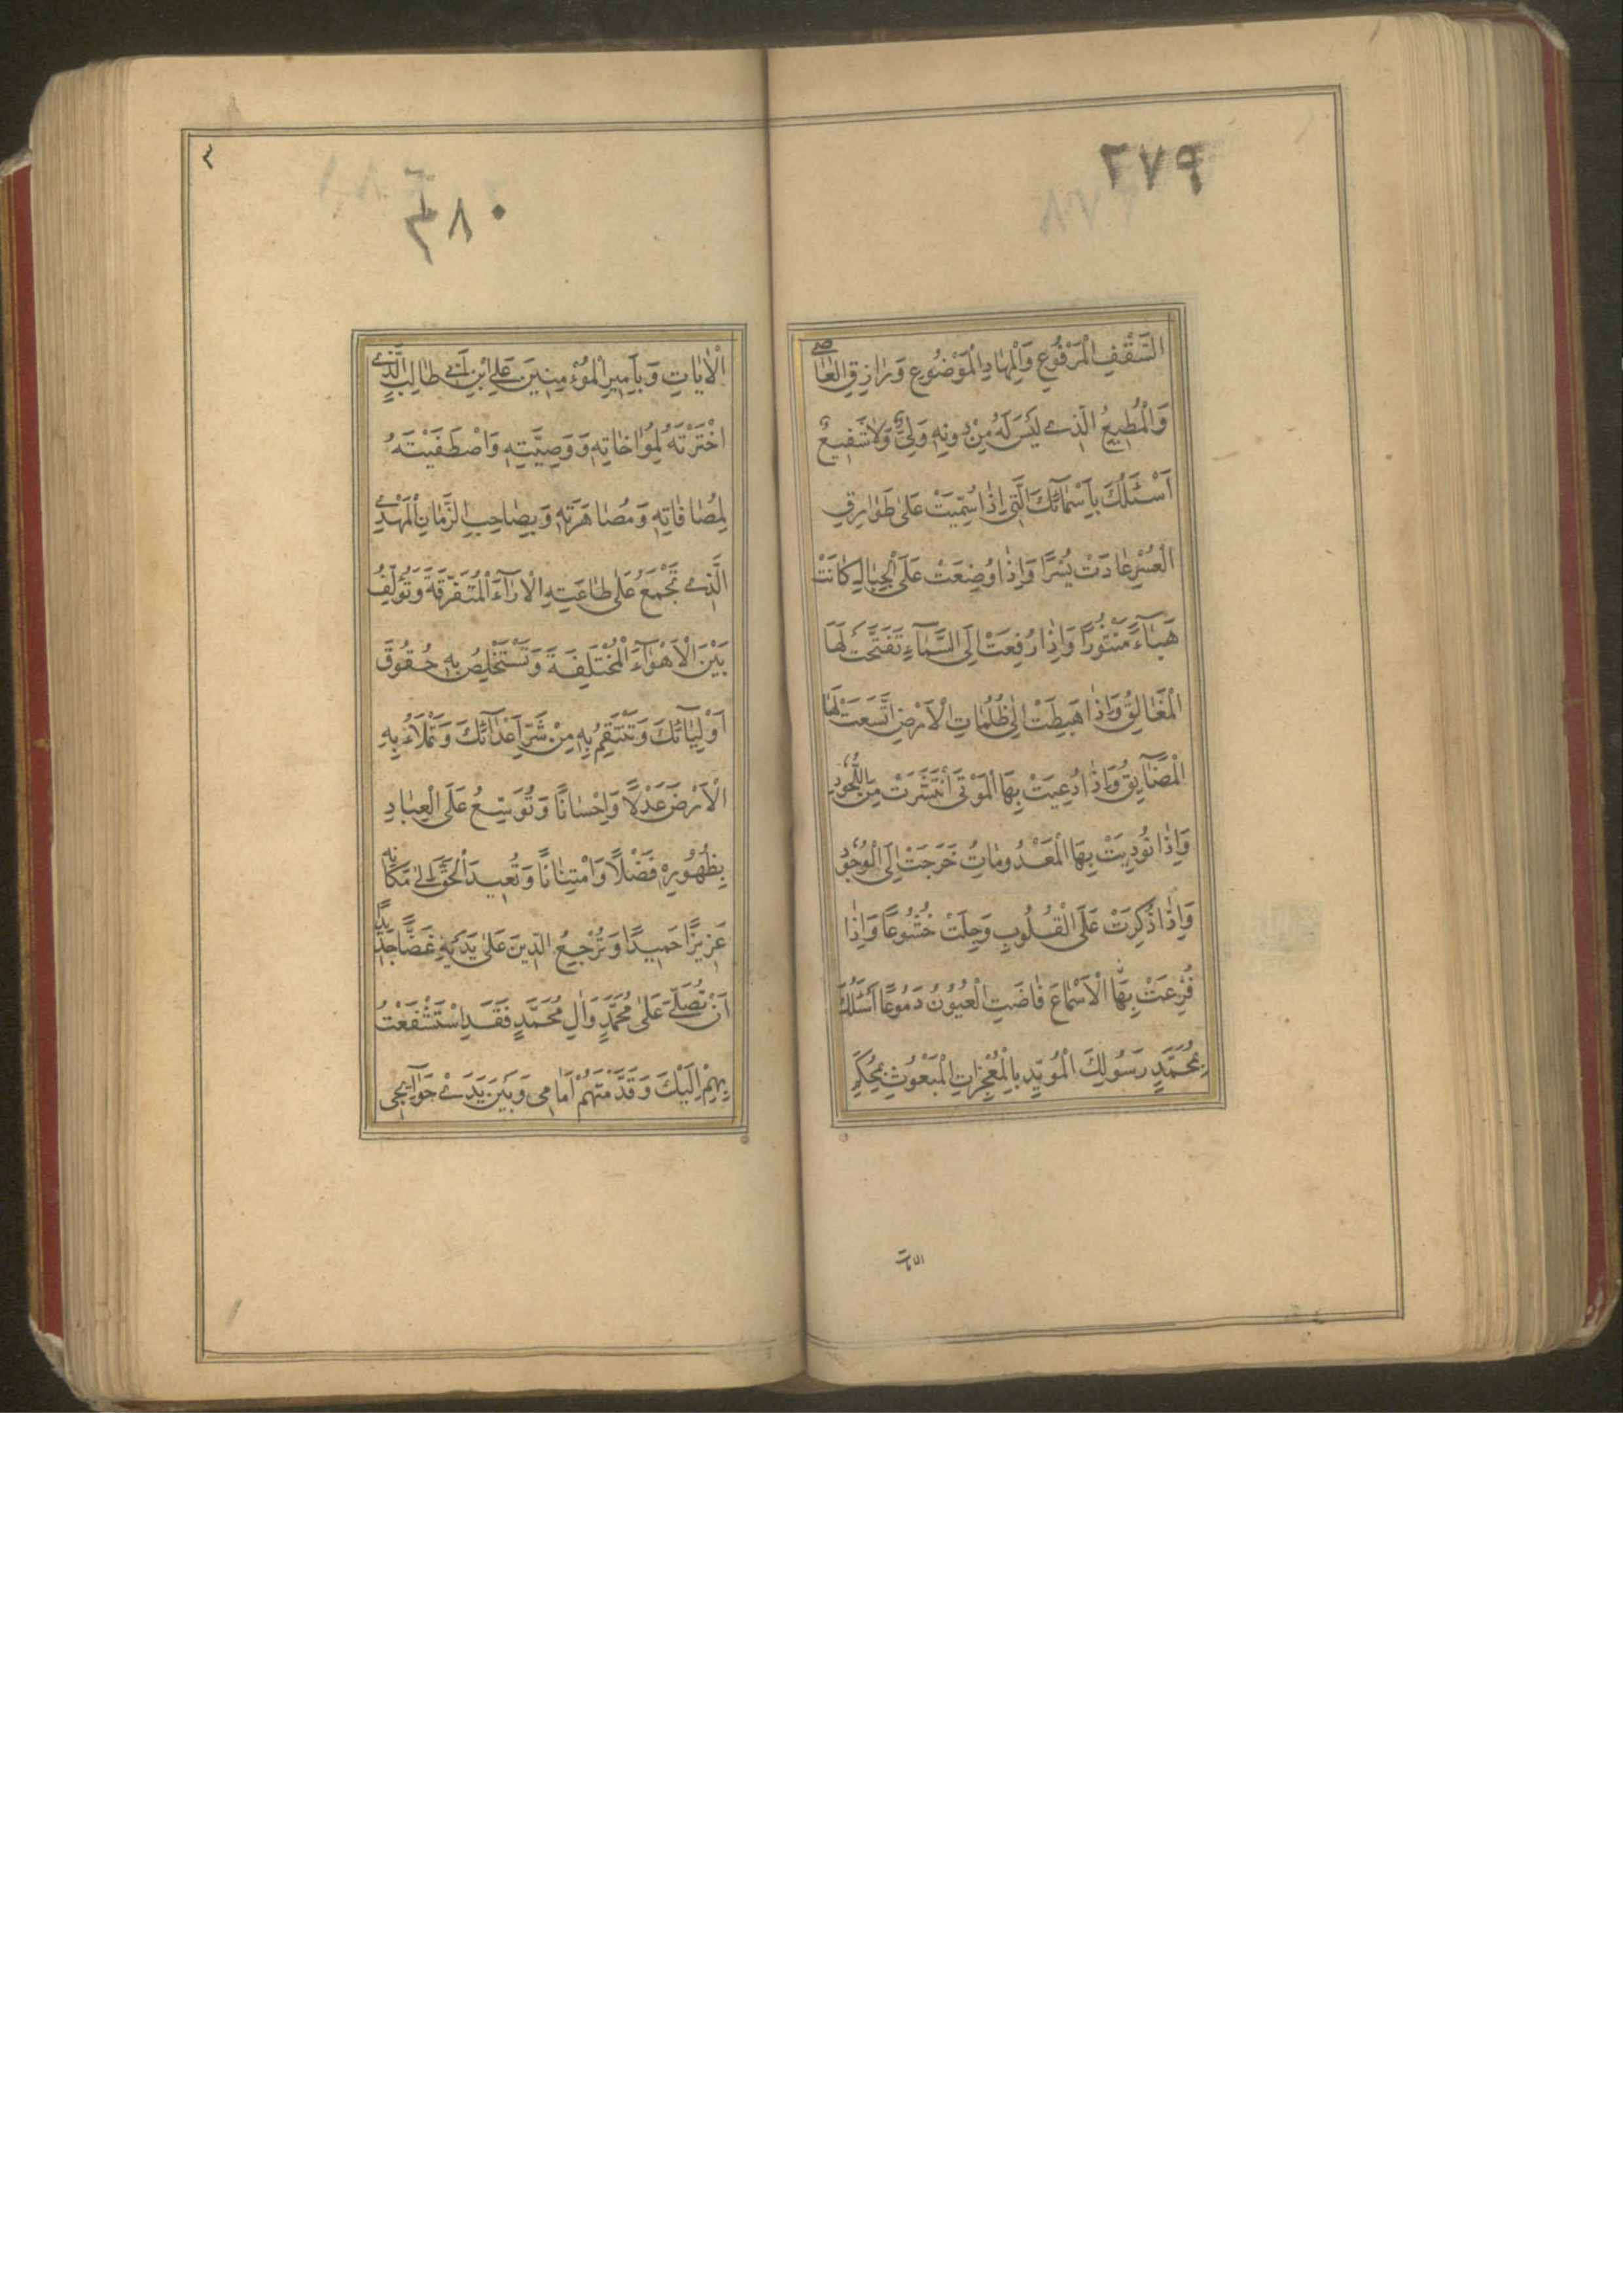 ٢٧٩
السَّقْفِ الْمَرْفُوعِ وَالْمِهَادِ الْمَوْضُوعِ وَرَازِقِ الْعَاصِي
وَالْمُطِيعِ الَّذِي لَيْسَ لَهُ مِنْ دُونِهِ وَلِيٌّ وَلَا شَفِيعٌ
اَسْئَلُكَ بِاَسْمَآئِكَ الَّتِي اِذَا سُمِّيَتْ عَلَى طَوَارِقِ
الْعُسْرِ عَادَتْ يُسْرًا وَاِذَا وُضِعَتْ عَلَى الْجِبَالِ كَانَتْ
هَبَآءً مَنْثُورًا وَاِذَا رُفِعَتْ اِلَى السَّمَآءِ تَفَتَّحَتْ لَهَا
الْمَغَالِقُ وَاِذَا هَبِطَتْ اِلَى ظُلُمَاتِ الْاَرْضِ اتَّسَعَتْ لَهَا
الْمَضَآيِقُ وَاِذَا دُعِيَتْ بِهَا الْمَوْتَى انْتَشَرَتْ مِنَ اللُّحُودِ
وَاِذَا نُودِيَتْ بِهَا الْمَعْدُومَاتُ خَرَجَتْ اِلَى الْوُجُودِ
وَاِذَا ذُكِرَتْ عَلَى الْقُلُوبِ وَجِلَتْ خُشُوعًا وَاِذَا
قُرِعَتْ بِهَا الْاَسْمَاعَ فَاضَتِ الْعُيُوُنُ دَمُوعًا اَسْئَلُكَ
بِمُحَمَّدٍ رَسُولِكَ الْمُؤَيَّدِ بِالْمُعْجِزَاتِ الْمَبْعُوثِ بِمُحْكَمِ
الايات
٢٨٠
الْاٰيَاتِ وَبِاَمِيرِ الْمُؤْمِنِينَ عَلِيِّ ابْنِ اَبِي طَالِبٍ الَّذِي
اخْتَرْتَهُ لِمُوَاخَاتِهِ وَوَصِيَّتِهِ وَاصْطَفَيْتَهُ
لِمُصَافَاتِهِ وَمُصَاهَرَتِهِ وَبِصَاحِبِ الزَّمَانِ الْمَهْدِي
الَّذِي تَجْمَعُ عَلَى طَاعَتِهِ الْاٰرَآءَ الْمُتَفَرِّقَةَ وَتُؤَلِّفُ
بَيْنَ الْاَهْوَآءِ الْمُخْتَلِفَةَ وَتَسْتَخْلِصُ بِهِ حُقُوقَ
اَوْلِيَآئِكَ وَتَنْتَقِمُ بِهِ مِنْ شَرِّ اَعْدَآئِكَ وَتَمْلَاُ بِهِ
الْاَرْضَ عَدْلًا وَاِحْسَانًا وَتُوَسِّعُ عَلَى الْعِبَادِ
بِظُهُورِهِ فَضْلًا وَامْتِنَانًا وَتُعِيدَ الْحَقَّ اِلَى مَكَانِهِ
عَزِيزًا حَمِيدًا وَتُرْجِعُ الدِّينَ عَلَى يَدَيْهِ غَضًّا جَدِيدًا
اَنْ تُصَلِّيَ عَلَى مُحَمَّدٍ وَاٰلِ مُحَمَّدٍ فَقَدِ اسْتَشْفَعْتُ
بِهِمْ اِلَيْكَ وَقَدَّمْتُهُمْ اَمَامِي وَبَيْنَ يَدَيْ حَوَآئِجِي